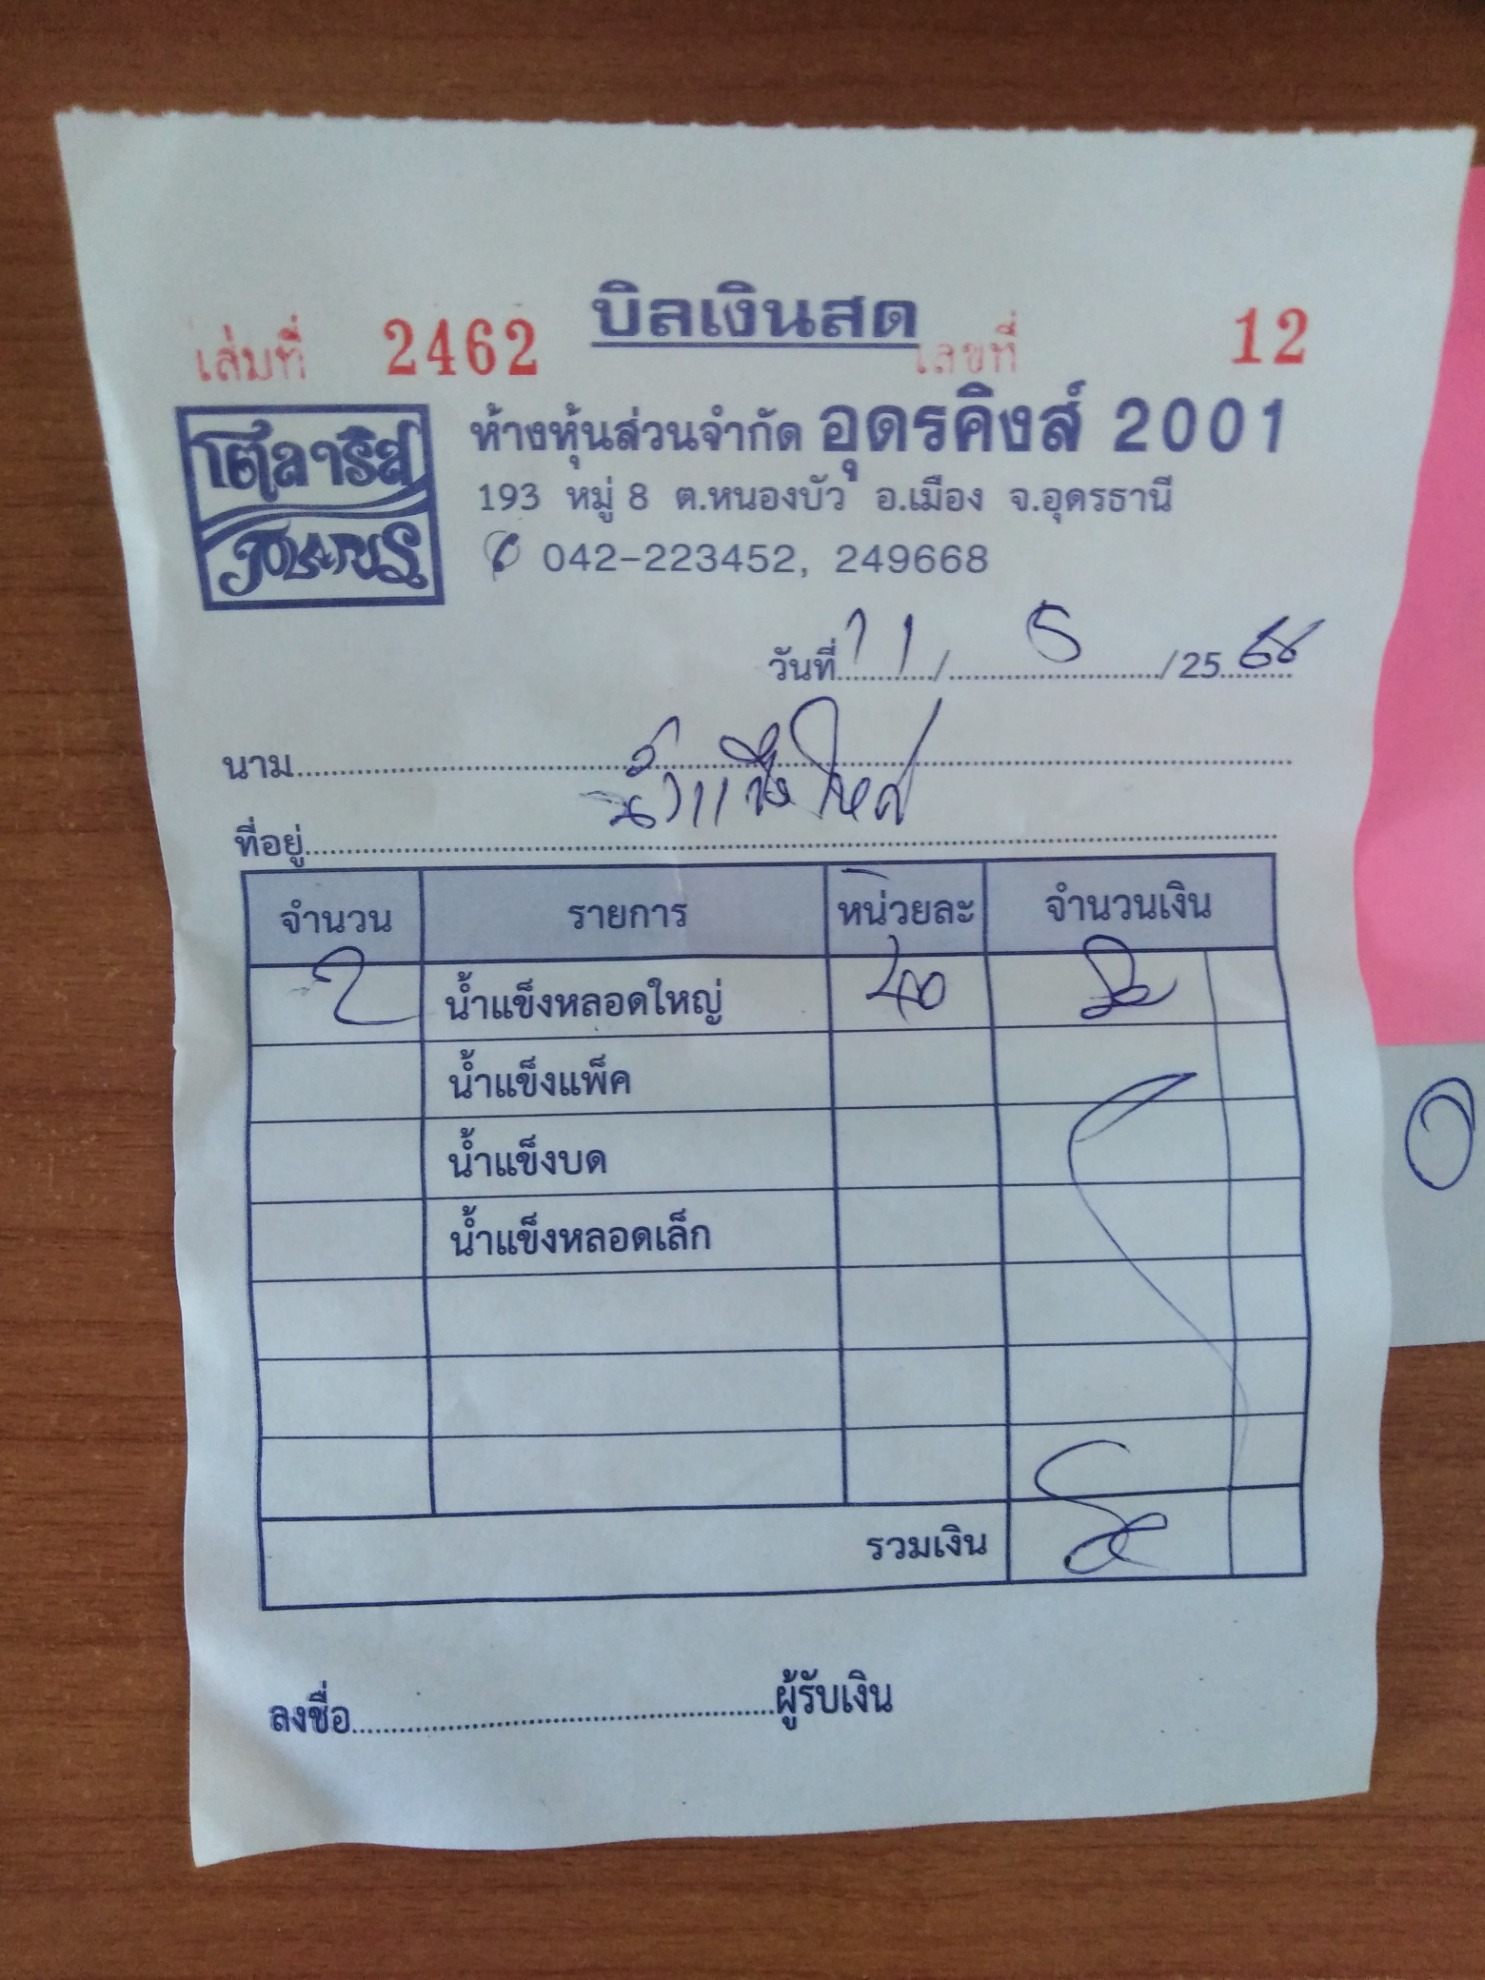 บิลเงินสด
เล่มที่ 2462 เลขที่ 12
โต๋ลาริส
ห้างหุ้นส่วนจำกัด อุดรคิงส์ 2001
193 หมู่ 8 ต.หนองบัว อ.เมือง จ.อุดรธานี
042-223452, 249668
วันที่ 11 / 5 / 25 68
นาม
ที่อยู่
จำนวน รายการ หน่วยละ จำนวนเงิน
2 น้ำแข็งหลอดใหญ่ 40 80
น้ำแข็งแพ็ค
น้ำแข็งบด
น้ำแข็งหลอดเล็ก
รวมเงิน 80
ลงชื่อ ผู้รับเงิน